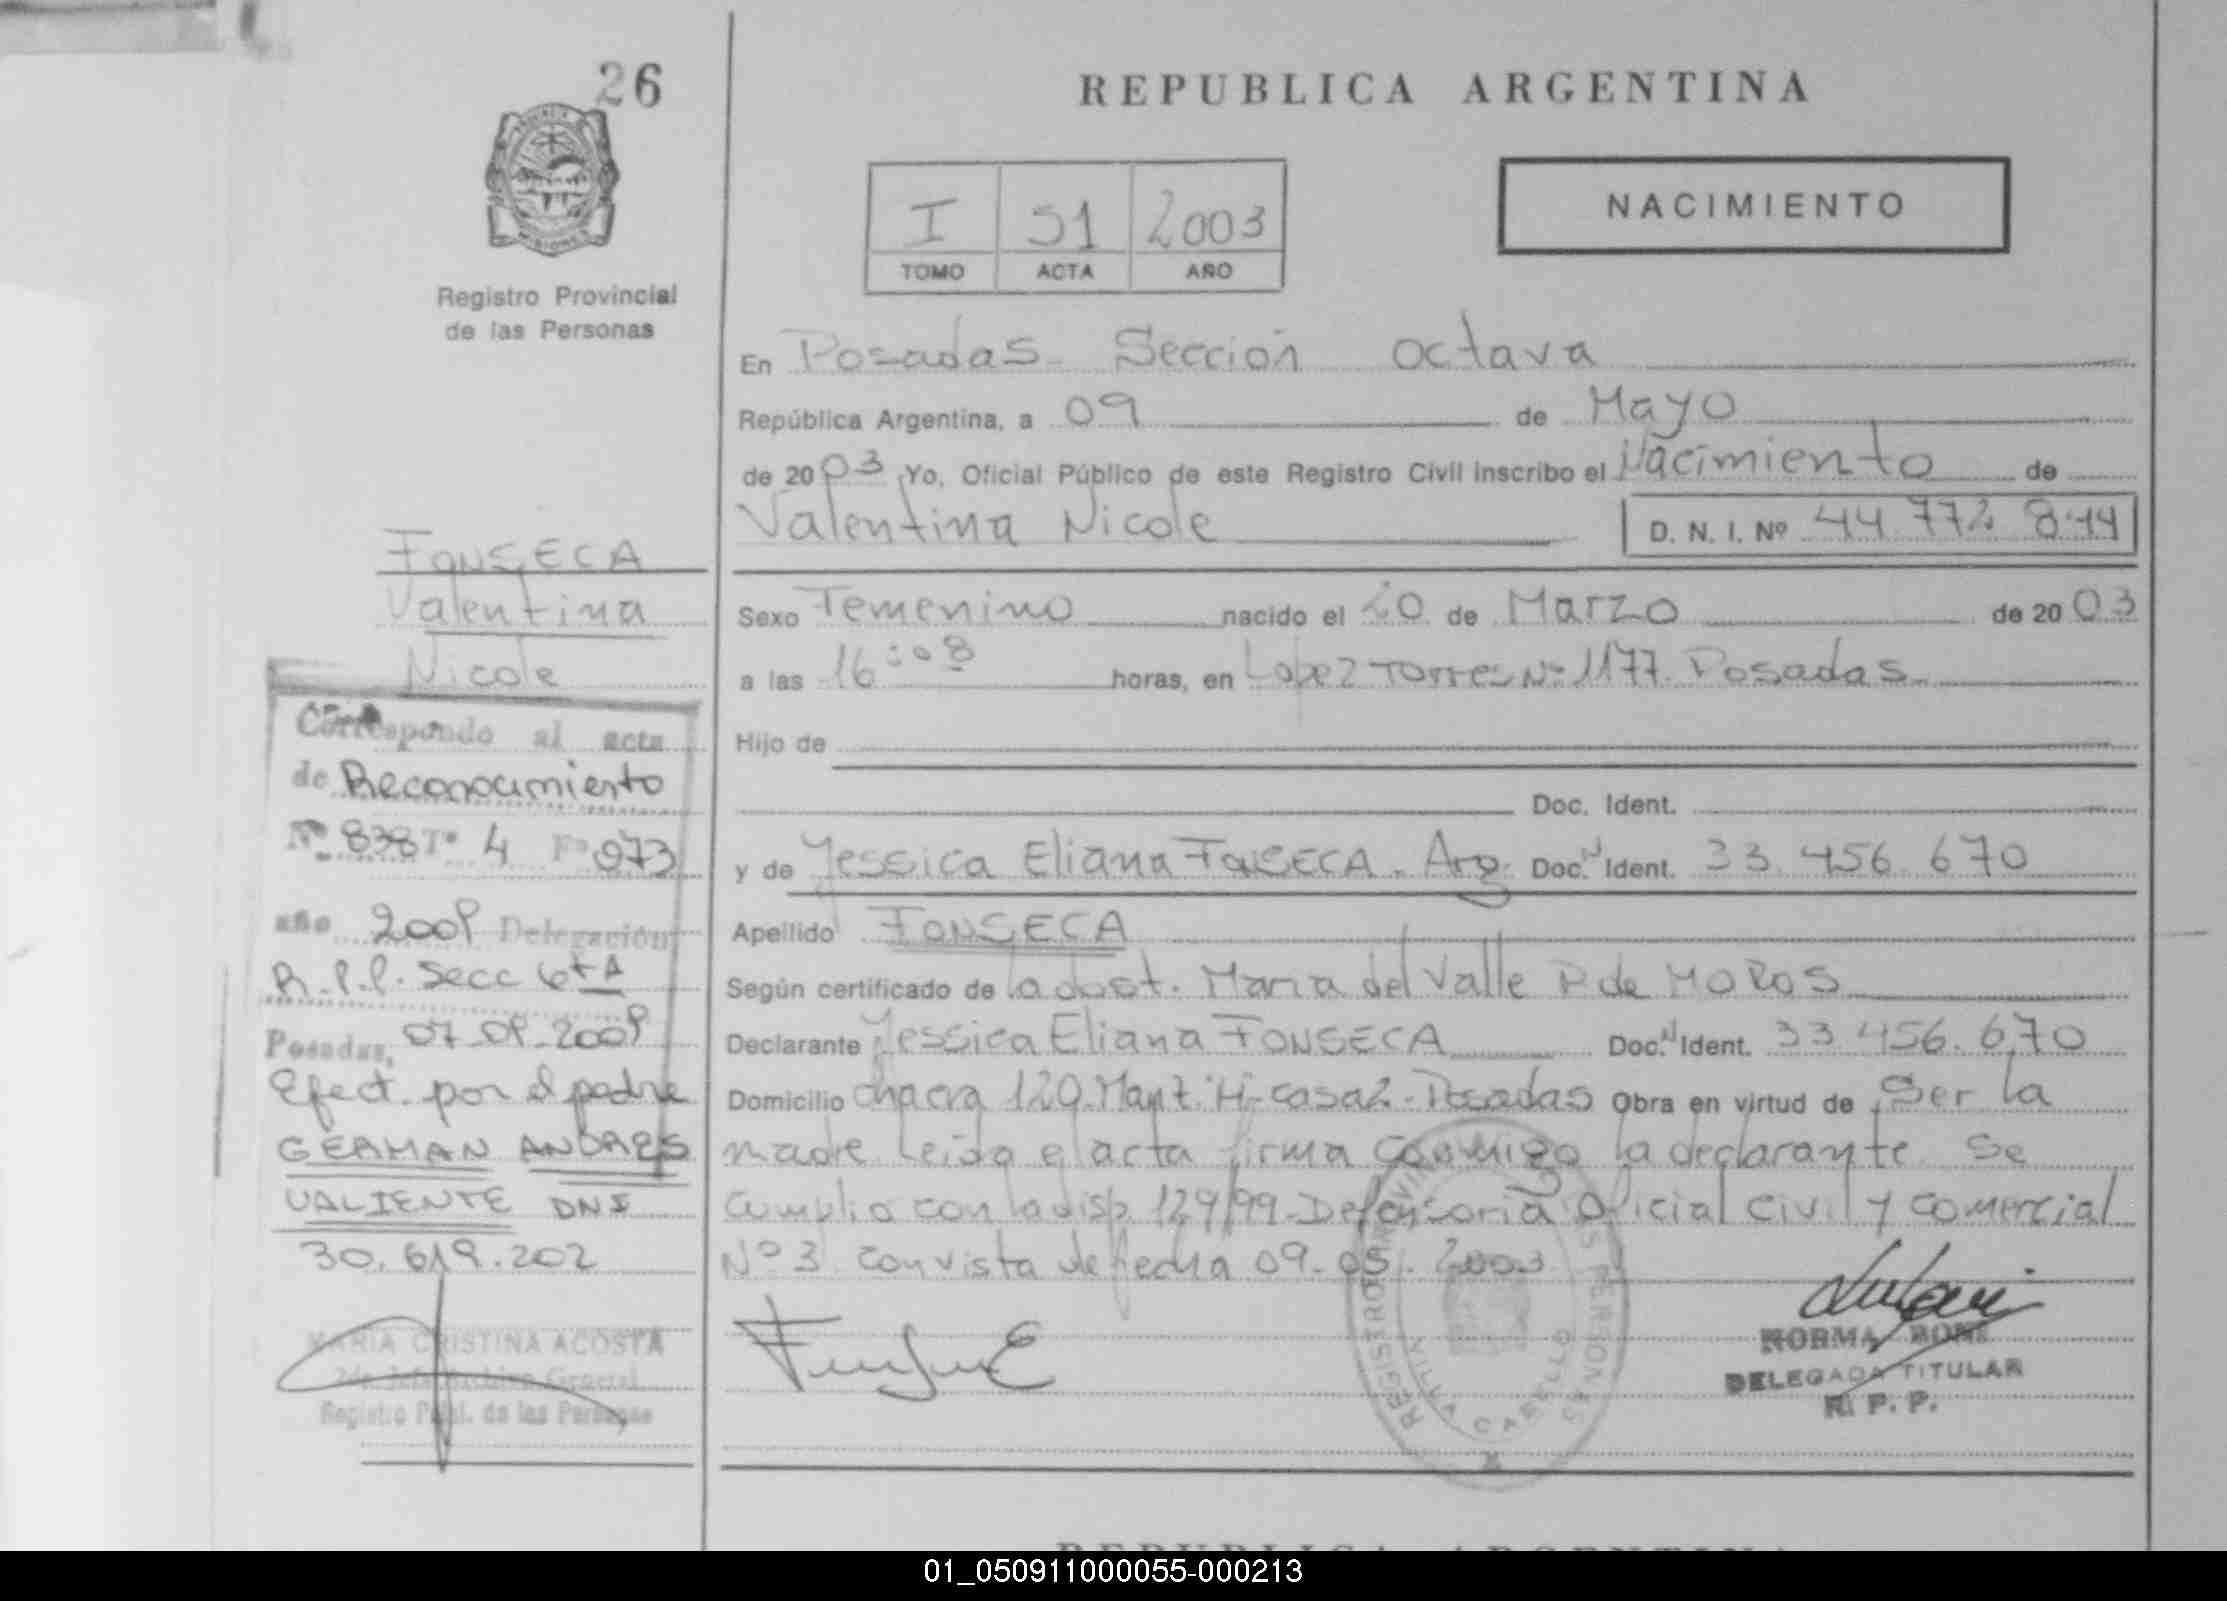 26
PROVINCIA DE
MISIONES
Registro Provincial
de las Personas
FONSECA
Valentina
Nicole
Corresponde al acta
de Reconocimiento
Nº 838 Tº 4 Fº 973
año 2009 Delegación
R.P.P. Secc 6tA
Posadas, 07-09-2009
Efect. por el padre
GERMAN ANDRES
VALIENTE DNI
30.619.202
MARIA CRISTINA ACOSTA
2do Jefe Archivo General
Registro Pcial. de las Personas
REPUBLICA ARGENTINA
I 51 2003
TOMO ACTA AÑO
NACIMIENTO
En Posadas - Sección Octava
República Argentina, a 09 de Mayo
de 2003 Yo, Oficial Público de este Registro Civil inscribo el Nacimiento de
Valentina Nicole D. N. I. Nº 44.772.814
Sexo Femenino nacido el 20 de Marzo de 2003
a las 16:08 horas, en Lopez Torres Nº 1177. Posadas
Hijo de
Doc. Ident.
y de Yessica Eliana FONSECA. Arg. Doc. Ident. 33.456.670
Apellido FONSECA
Según certificado de la obst. Maria del Valle P. de MOROS
Declarante Yessica Eliana FONSECA Doc. Ident. 33.456.670
Domicilio Chacra 120. Manz. H- casa 2 - Posadas Obra en virtud de Ser la
madre Leida el acta firma conmigo la declarante Se
cumplio con la disp. 129/99 - Defensoria Oficial Civil y Comercial
Nº 3 con vista de fecha 09-05-2003
REGISTRO PROVINCIAL DE LAS PERSONAS
VILLA CABELLO
NORMA BONE
DELEGADA TITULAR
R. P. P.
REPUBLICA ARGENTINA
01_050911000055-000213